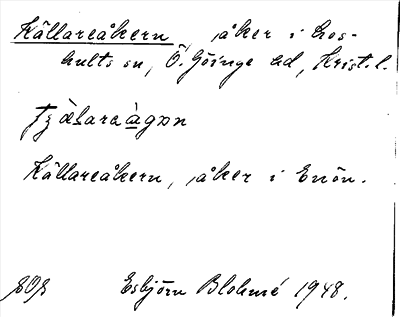 Källareåkern, åker i Los-
hults sn, Ö. Göinge hd, Krist. l.
Källareåkern, åker i Enön.
Esbjörn Blohmé 1948.